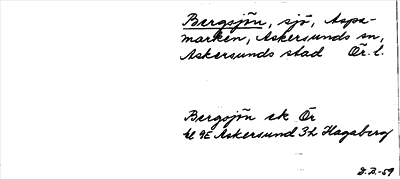 Bergsjön, sjö, Aspa-
marken, Askersunds sn,
Askersunds stad Ör. l.
Bergsjön ek Ör
bl 9E Askersund 3h Hagaberg
D.A.-59